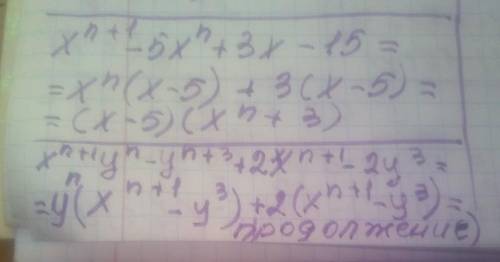 xⁿ⁺¹ - 5xⁿ + 3x - 15 =
= xⁿ(x - 5) + 3(x - 5) =
= (x - 5)(xⁿ + 3)
xⁿ⁺¹yⁿ - yⁿ⁺³ + 2xⁿ⁺¹ - 2y³ =
= yⁿ(xⁿ⁺¹ - y³) + 2(xⁿ⁺¹ - y³) =
продолжение)